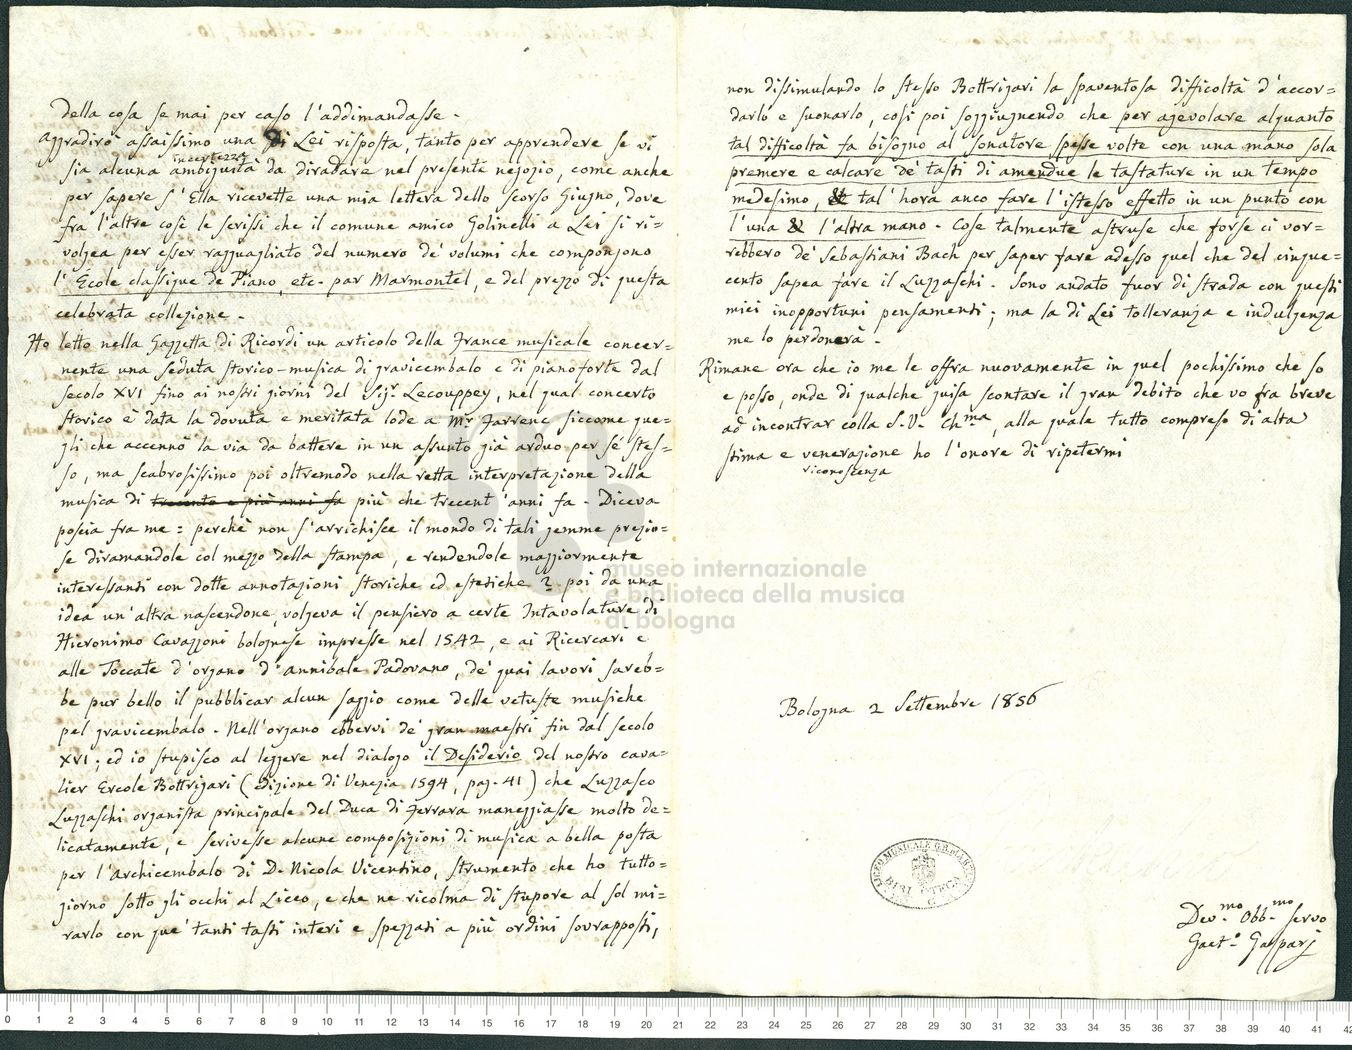 della cosa se mai per caso l'addimandasse.
Aggradirò assaissimo una di Lei risposta, tanto per apprendere se vi
incertezza
sia alcuna ambiguità da diradare nel presente negozio, come anche
per sapere s'Ella ricevette una mia lettera dello scorso Giugno, dove
fra l'altre cose le scrissi che il comune amico Golinelli a Lei si ri=
volgea per esser ragguagliato del numero de' volumi che compongono
l'Ecole classique de Piano, etc. par Marmontel, e del prezzo di questa
celebrata collezione.
Ho letto nella Gazzetta di Ricordi un articolo della France musicale concer=
nente una seduta storico-musica di gravicembalo e di pianoforte dal
secolo XVI fino ai nostri giorni del Sigr. Lecouppey, nel qual concerto
storico è data la dovuta e meritata lode a Mr Farrenc siccome que=
gli che accennò la via da battere in un assunto già arduo per sé stes=
so, ma scabrosissimo poi oltremodo nella retta interpretazione della
musica di trecento e più anni fa più che trecent'anni fa. Diceva
poscia fra me: perché non s'arrichisce il mondo di tali gemme prezio=
se diramandole col mezzo della stampa, e rendendole maggiormente
interessanti con dotte annotazioni storiche ed estetiche? poi da una
idea un'altra nascendone, volgeva il pensiero a certe Intavolature di
Hieronimo Cavazzoni bolognese impresse nel 1542, e ai Ricercari e
alle Toccate d'organo d'Annibale Padovano, de' quai lavori sareb=
be pur bello il pubblicar alcun saggio come delle vetuste musiche
pel gravicembalo. Nell'organo ebbervi de' gran maestri fin dal secolo
XVI; ed io stupisco al leggere nel dialogo il Desiderio del nostro cava=
lier Ercole Bottrigari (Edizione di Venezia 1594, pag. 41) che Luzzasco
Luzzaschi organista principale del Duca di Ferrara maneggiasse molto de=
licatamente, e scrivesse alcune composizioni di musica a bella posta
per l'archicembalo di D. Nicola Vicentino, strumento che ho tutto=
giorno sotto gli occhi al Liceo, e che ne ricolma di stupore al sol mi=
rarlo con que' tanti tasti interi e spezzati a più ordini sovrapposti,
non dissimulando lo stesso Bottrigari la spaventosa difficoltà d'accor=
darlo e suonarlo, così poi soggiugnendo che per agevolare alquanto
tal difficoltà fa bisogno al sonatore spesse volte con una mano sola
premere e calcare de' tasti di amendue le tastature in un tempo
medesimo, & tal'hora anco fare l'istesso effetto in un punto con
l'una & l'altra mano. Cose talmente astruse che forse ci vor=
rebbero de' Sebastiani Bach per saper fare adesso quel che del cinque=
cento sapea fare il Luzzaschi. Sono andato fuor di strada con questi
miei inopportuni pensamenti; ma la di Lei tolleranza e indulgenza
me lo perdonerà.
Rimane ora che io me le offra nuovamente in quel pochissimo che so
e posso, onde di qualche guisa scontare il gran debito che vo fra breve
ad incontrar colla S.V. Ch.ma, alla quale tutto compreso di alta
stima e venerazione ho l'onore di ripetermi
riconoscenza
Bologna 2 Settembre 1856
Dev.mo Obb.mo servo
Gaet.o Gaspari
LICEO MUSICALE G.B. MARTINI
BIBLIOTECA
museo internazionale
e biblioteca della musica
di bologna
0 1 2 3 4 5 6 7 8 9 10 11 12 13 14 15 16 17 18 19 20 21 22 23 24 25 26 27 28 29 30 31 32 33 34 35 36 37 38 39 40 41 42